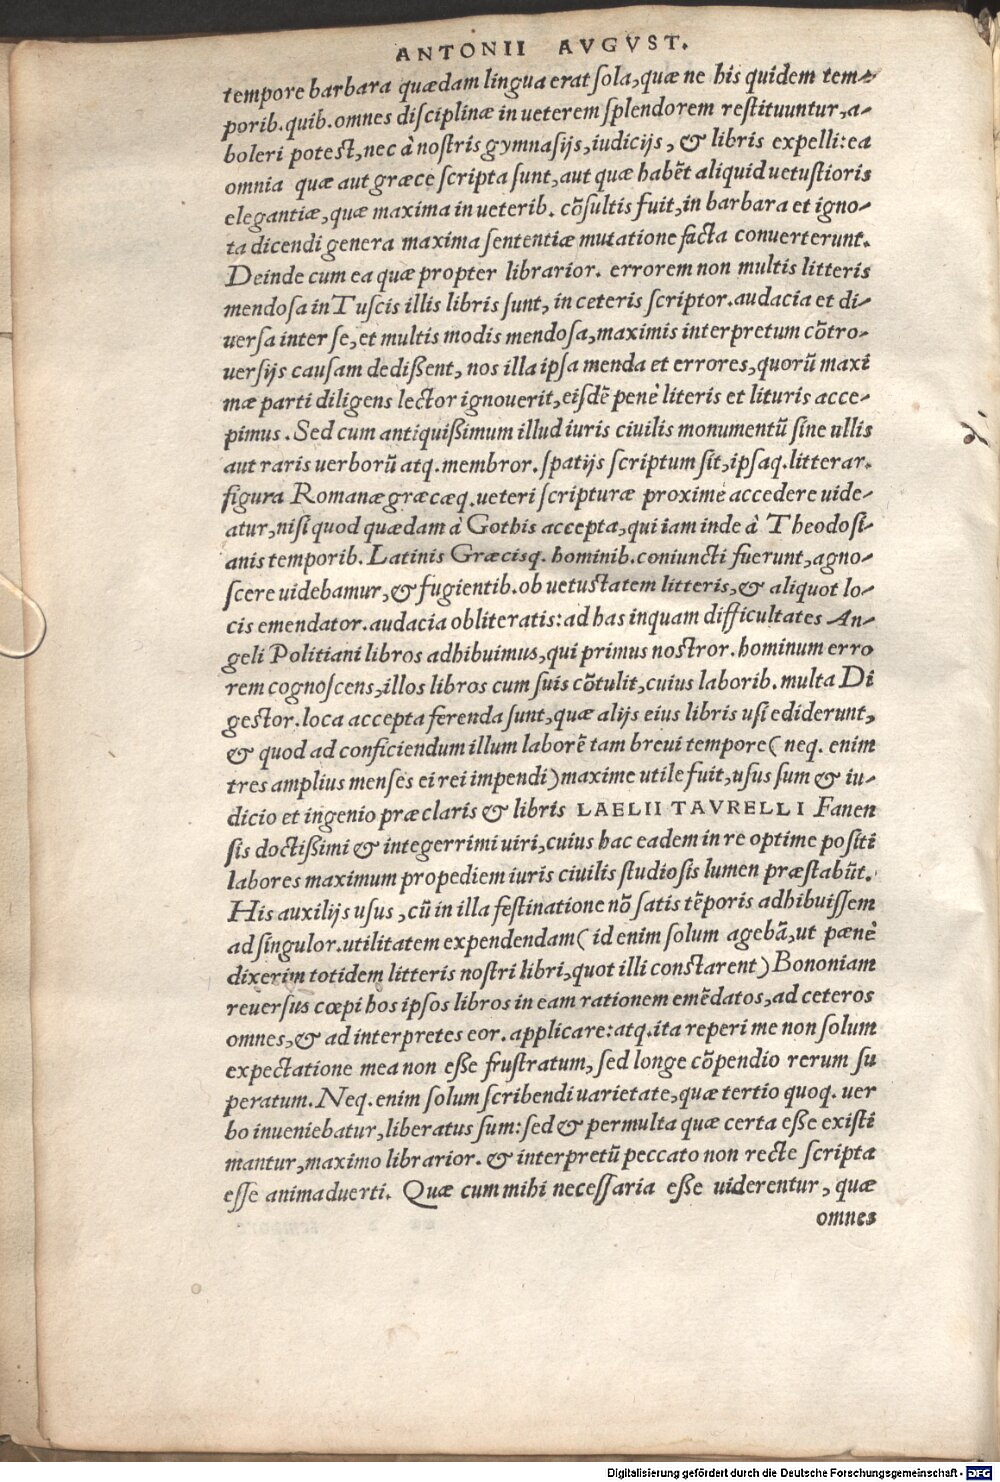 ANTONII AVGVST.
tempore barbara quædam lingua erat ſola, quæ ne his quidem tem-
porib. quib. omnes diſciplinæ in ueterem ſplendorem reſtituuntur, a-
boleri poteſt, nec à noſtris gymnaſijs, iudicijs, & libris expelli: ea
omnia quæ aut græce ſcripta ſunt, aut quæ habẽt aliquid uetuſtioris
elegantiæ, quæ maxima in ueterib. cõſultis fuit, in barbara et igno-
ta dicendi genera maxima ſententiæ mutatione facta conuerterunt.
Deinde cum ea quæ propter librarior. errorem non multis litteris
mendoſa in Tuſcis illis libris ſunt, in ceteris ſcriptor. audacia et di-
uerſa inter ſe, et multis modis mendoſa, maximis interpretum cõtro-
uerſijs cauſam dedißent, nos illa ipſa menda et errores, quorũ maxi
mæ parti diligens lector ignouerit, eiſdẽ penè literis et lituris acce-
pimus. Sed cum antiquißimum illud iuris ciuilis monumentũ ſine ullis
aut raris uerborũ atq. membror. ſpatijs ſcriptum ſit, ipſaq. litterar.
figura Romanæ græcæq. ueteri ſcripturæ proxime accedere uide-
atur, niſi quod quædam à Gothis accepta, qui iam inde à Theodoſi-
anis temporib. Latinis Græcisq. hominib. coniuncti fuerunt, agno-
ſcere uidebamur, & fugientib. ob uetuſtatem litteris, & aliquot lo-
cis emendator. audacia obliteratis: ad has inquam difficultates An-
geli Politiani libros adhibuimus, qui primus noſtror. hominum erro
rem cognoſcens, illos libros cum ſuis cõtulit, cuius laborib. multa Di
geſtor. loca accepta ferenda ſunt, quæ alijs eius libris uſi ediderunt,
& quod ad conficiendum illum laborẽ tam breui tempore (neq. enim
tres amplius menſes ei rei impendi) maxime utile fuit, uſus ſum & iu-
dicio et ingenio præclaris & libris LAELII TAVRELLI Fanen
ſis doctißimi & integerrimi uiri, cuius hac eadem in re optime poſiti
labores maximum propediem iuris ciuilis ſtudioſis lumen præſtabũt.
His auxilijs uſus, cũ in illa feſtinatione nõ ſatis tẽporis adhibuiſſem
ad ſingulor. utilitatem expendendam (id enim ſolum agebã, ut pænè
dixerim totidem litteris noſtri libri, quot illi conſtarent) Bononiam
reuerſus cœpi hos ipſos libros in eam rationem emẽdatos, ad ceteros
omnes, & ad interpretes eor. applicare: atq. ita reperi me non ſolum
expectatione mea non eße fruſtratum, ſed longe cõpendio rerum ſu
peratum. Neq. enim ſolum ſcribendi uarietate, quæ tertio quoq. uer
bo inueniebatur, liberatus ſum: ſed & permulta quæ certa eße exiſti
mantur, maximo librarior. & interpretũ peccato non recte ſcripta
eſſe animaduerti. Quæ cum mihi neceſſaria eße uiderentur, quæ
omnes
Digitalisierung gefördert durch die Deutsche Forschungsgemeinschaft - DFG